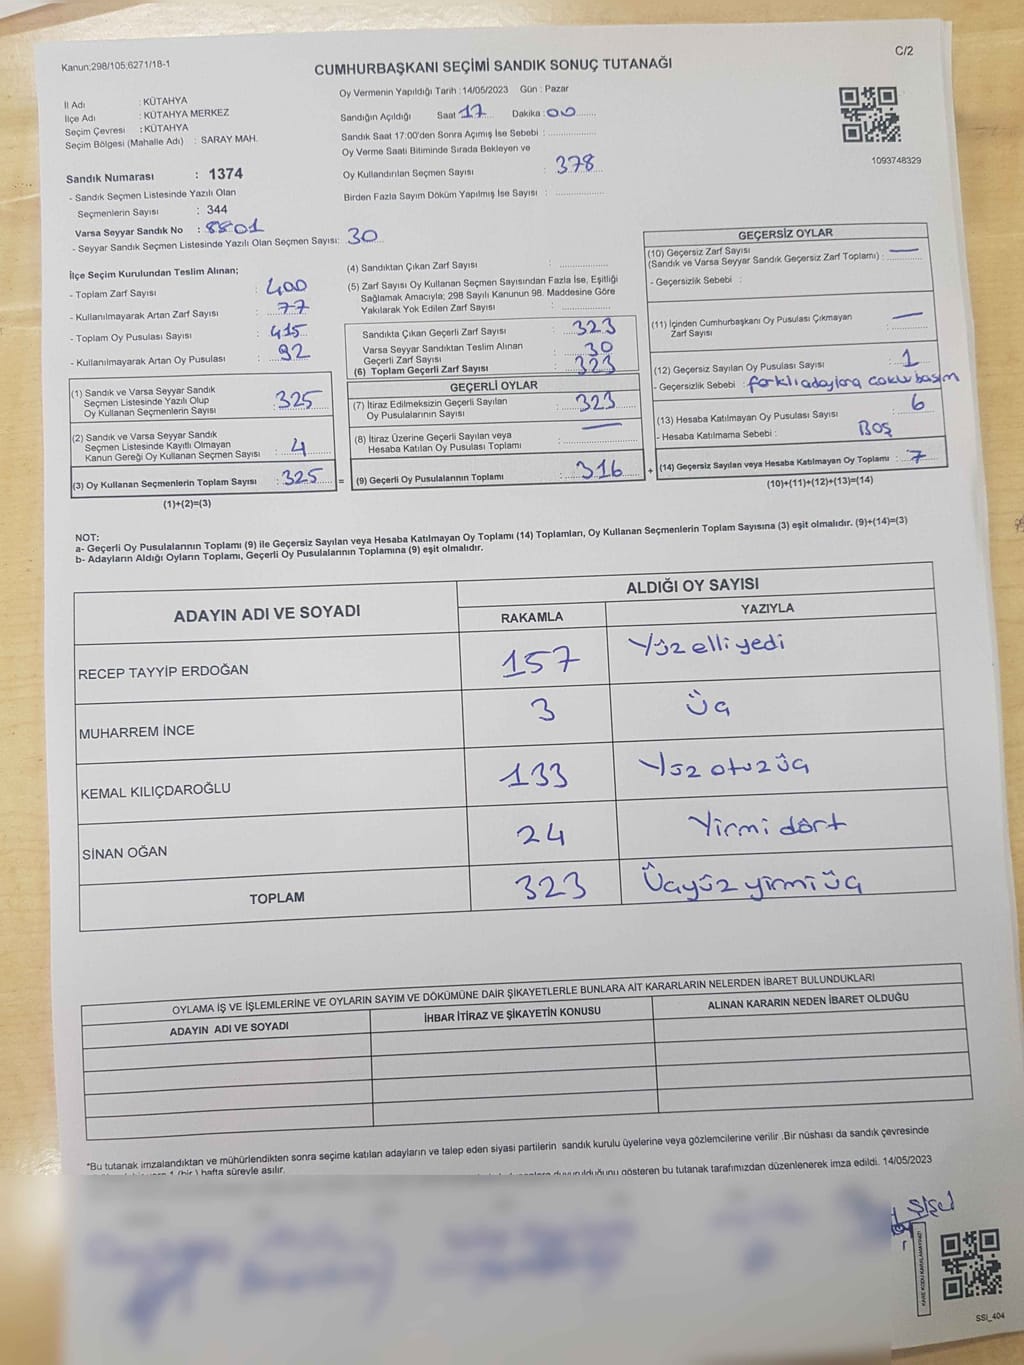 Kanun;298/105;6271/18-1
C/2
CUMHURBAŞKANI SEÇİMİ SANDIK SONUÇ TUTANAĞI
İl Adı : KÜTAHYA
İlçe Adı : KÜTAHYA MERKEZ
Seçim Çevresi : KÜTAHYA
Seçim Bölgesi (Mahalle Adı) : SARAY MAH.
Oy Vermenin Yapıldığı Tarih : 14/05/2023 Gün : Pazar
Sandığın Açıldığı Saat 17 Dakika : 00
Sandık Saat 17:00'den Sonra Açımış İse Sebebi :
Oy Verme Saati Bitiminde Sırada Bekleyen ve
Oy Kullandırılan Seçmen Sayısı : 378
Birden Fazla Sayım Döküm Yapılmış İse Sayısı :
1093748329
Sandık Numarası : 1374
- Sandık Seçmen Listesinde Yazılı Olan
Seçmenlerin Sayısı : 344
Varsa Seyyar Sandık No : 8801
- Seyyar Sandık Seçmen Listesinde Yazılı Olan Seçmen Sayısı: 30
İlçe Seçim Kurulundan Teslim Alınan;
- Toplam Zarf Sayısı : 400
- Kullanılmayarak Artan Zarf Sayısı : 77
- Toplam Oy Pusulası Sayısı : 415
- Kullanılmayarak Artan Oy Pusulası : 92
(1) Sandık ve Varsa Seyyar Sandık
Seçmen Listesinde Yazılı Olup
Oy Kullanan Seçmenlerin Sayısı : 325
(2) Sandık ve Varsa Seyyar Sandık
Seçmen Listesinde Kayıtlı Olmayan
Kanun Gereği Oy Kullanan Seçmen Sayısı : 4
(3) Oy Kullanan Seçmenlerin Toplam Sayısı : 325
(1)+(2)=(3)
(4) Sandıktan Çıkan Zarf Sayısı :
(5) Zarf Sayısı Oy Kullanan Seçmen Sayısından Fazla İse, Eşitliği
Sağlamak Amacıyla; 298 Sayılı Kanunun 98. Maddesine Göre
Yakılarak Yok Edilen Zarf Sayısı :
Sandıkta Çıkan Geçerli Zarf Sayısı : 323
Varsa Seyyar Sandıktan Teslim Alınan
Geçerli Zarf Sayısı : 30
(6) Toplam Geçerli Zarf Sayısı : 323
GEÇERLİ OYLAR
(7) İtiraz Edilmeksizin Geçerli Sayılan
Oy Pusulalarının Sayısı : 323
(8) İtiraz Üzerine Geçerli Sayılan veya
Hesaba Katılan Oy Pusulası Toplamı : —
= (9) Geçerli Oy Pusulalarının Toplamı : 316
GEÇERSİZ OYLAR
(10) Geçersiz Zarf Sayısı
(Sandık ve Varsa Seyyar Sandık Geçersiz Zarf Toplamı) : —
- Geçersizlik Sebebi :
(11) İçinden Cumhurbaşkanı Oy Pusulası Çıkmayan
Zarf Sayısı : —
(12) Geçersiz Sayılan Oy Pusulası Sayısı : 1
- Geçersizlik Sebebi : farklı adaylara çoklu basım
(13) Hesaba Katılmayan Oy Pusulası Sayısı : 6
- Hesaba Katılmama Sebebi : BOŞ
+ (14) Geçersiz Sayılan veya Hesaba Katılmayan Oy Toplamı : 7
(10)+(11)+(12)+(13)=(14)
NOT:
a- Geçerli Oy Pusulalarının Toplamı (9) ile Geçersiz Sayılan veya Hesaba Katılmayan Oy Toplamı (14) Toplamları, Oy Kullanan Seçmenlerin Toplam Sayısına (3) eşit olmalıdır. (9)+(14)=(3)
b- Adayların Aldığı Oyların Toplamı, Geçerli Oy Pusulalarının Toplamına (9) eşit olmalıdır.
ADAYIN ADI VE SOYADI
ALDIĞI OY SAYISI
RAKAMLA YAZIYLA
RECEP TAYYİP ERDOĞAN 157 Yüz elli yedi
MUHARREM İNCE 3 Üç
KEMAL KILIÇDAROĞLU 133 Yüz otuz üç
SİNAN OĞAN 24 Yirmi dört
TOPLAM 323 Üçyüz yirmi üç
OYLAMA İŞ VE İŞLEMLERİNE VE OYLARIN SAYIM VE DÖKÜMÜNE DAİR ŞİKAYETLERLE BUNLARA AİT KARARLARIN NELERDEN İBARET BULUNDUKLARI
ADAYIN ADI VE SOYADI İHBAR İTİRAZ VE ŞİKAYETİN KONUSU ALINAN KARARIN NEDEN İBARET OLDUĞU
*Bu tutanak imzalandıktan ve mühürlendikten sonra seçime katılan adayların ve talep eden siyasi partilerin sandık kurulu üyelerine veya gözlemcilerine verilir .Bir nüshası da sandık çevresinde
hafta süreyle asılır.
duyurulduğunu gösteren bu tutanak tarafımızdan düzenlenerek imza edildi. 14/05/2023
KARE KODU KARALAMAYINIZ!
SSI_404